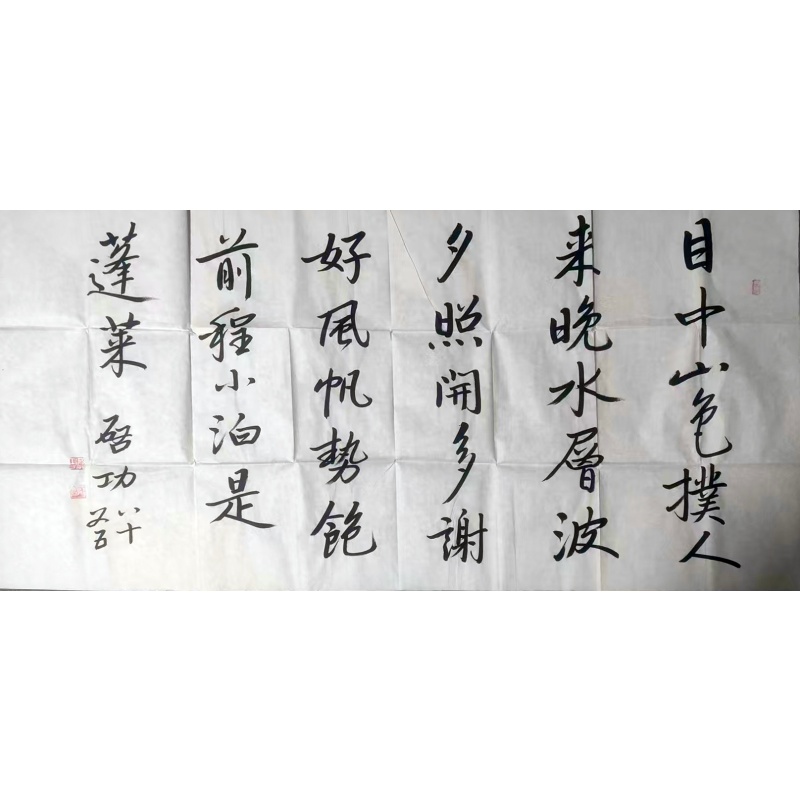 目中山色撲人
来晚水層波
夕照開多謝
好風帆勢飽
前程小泊是
蓬莱
啓功
八十
又五